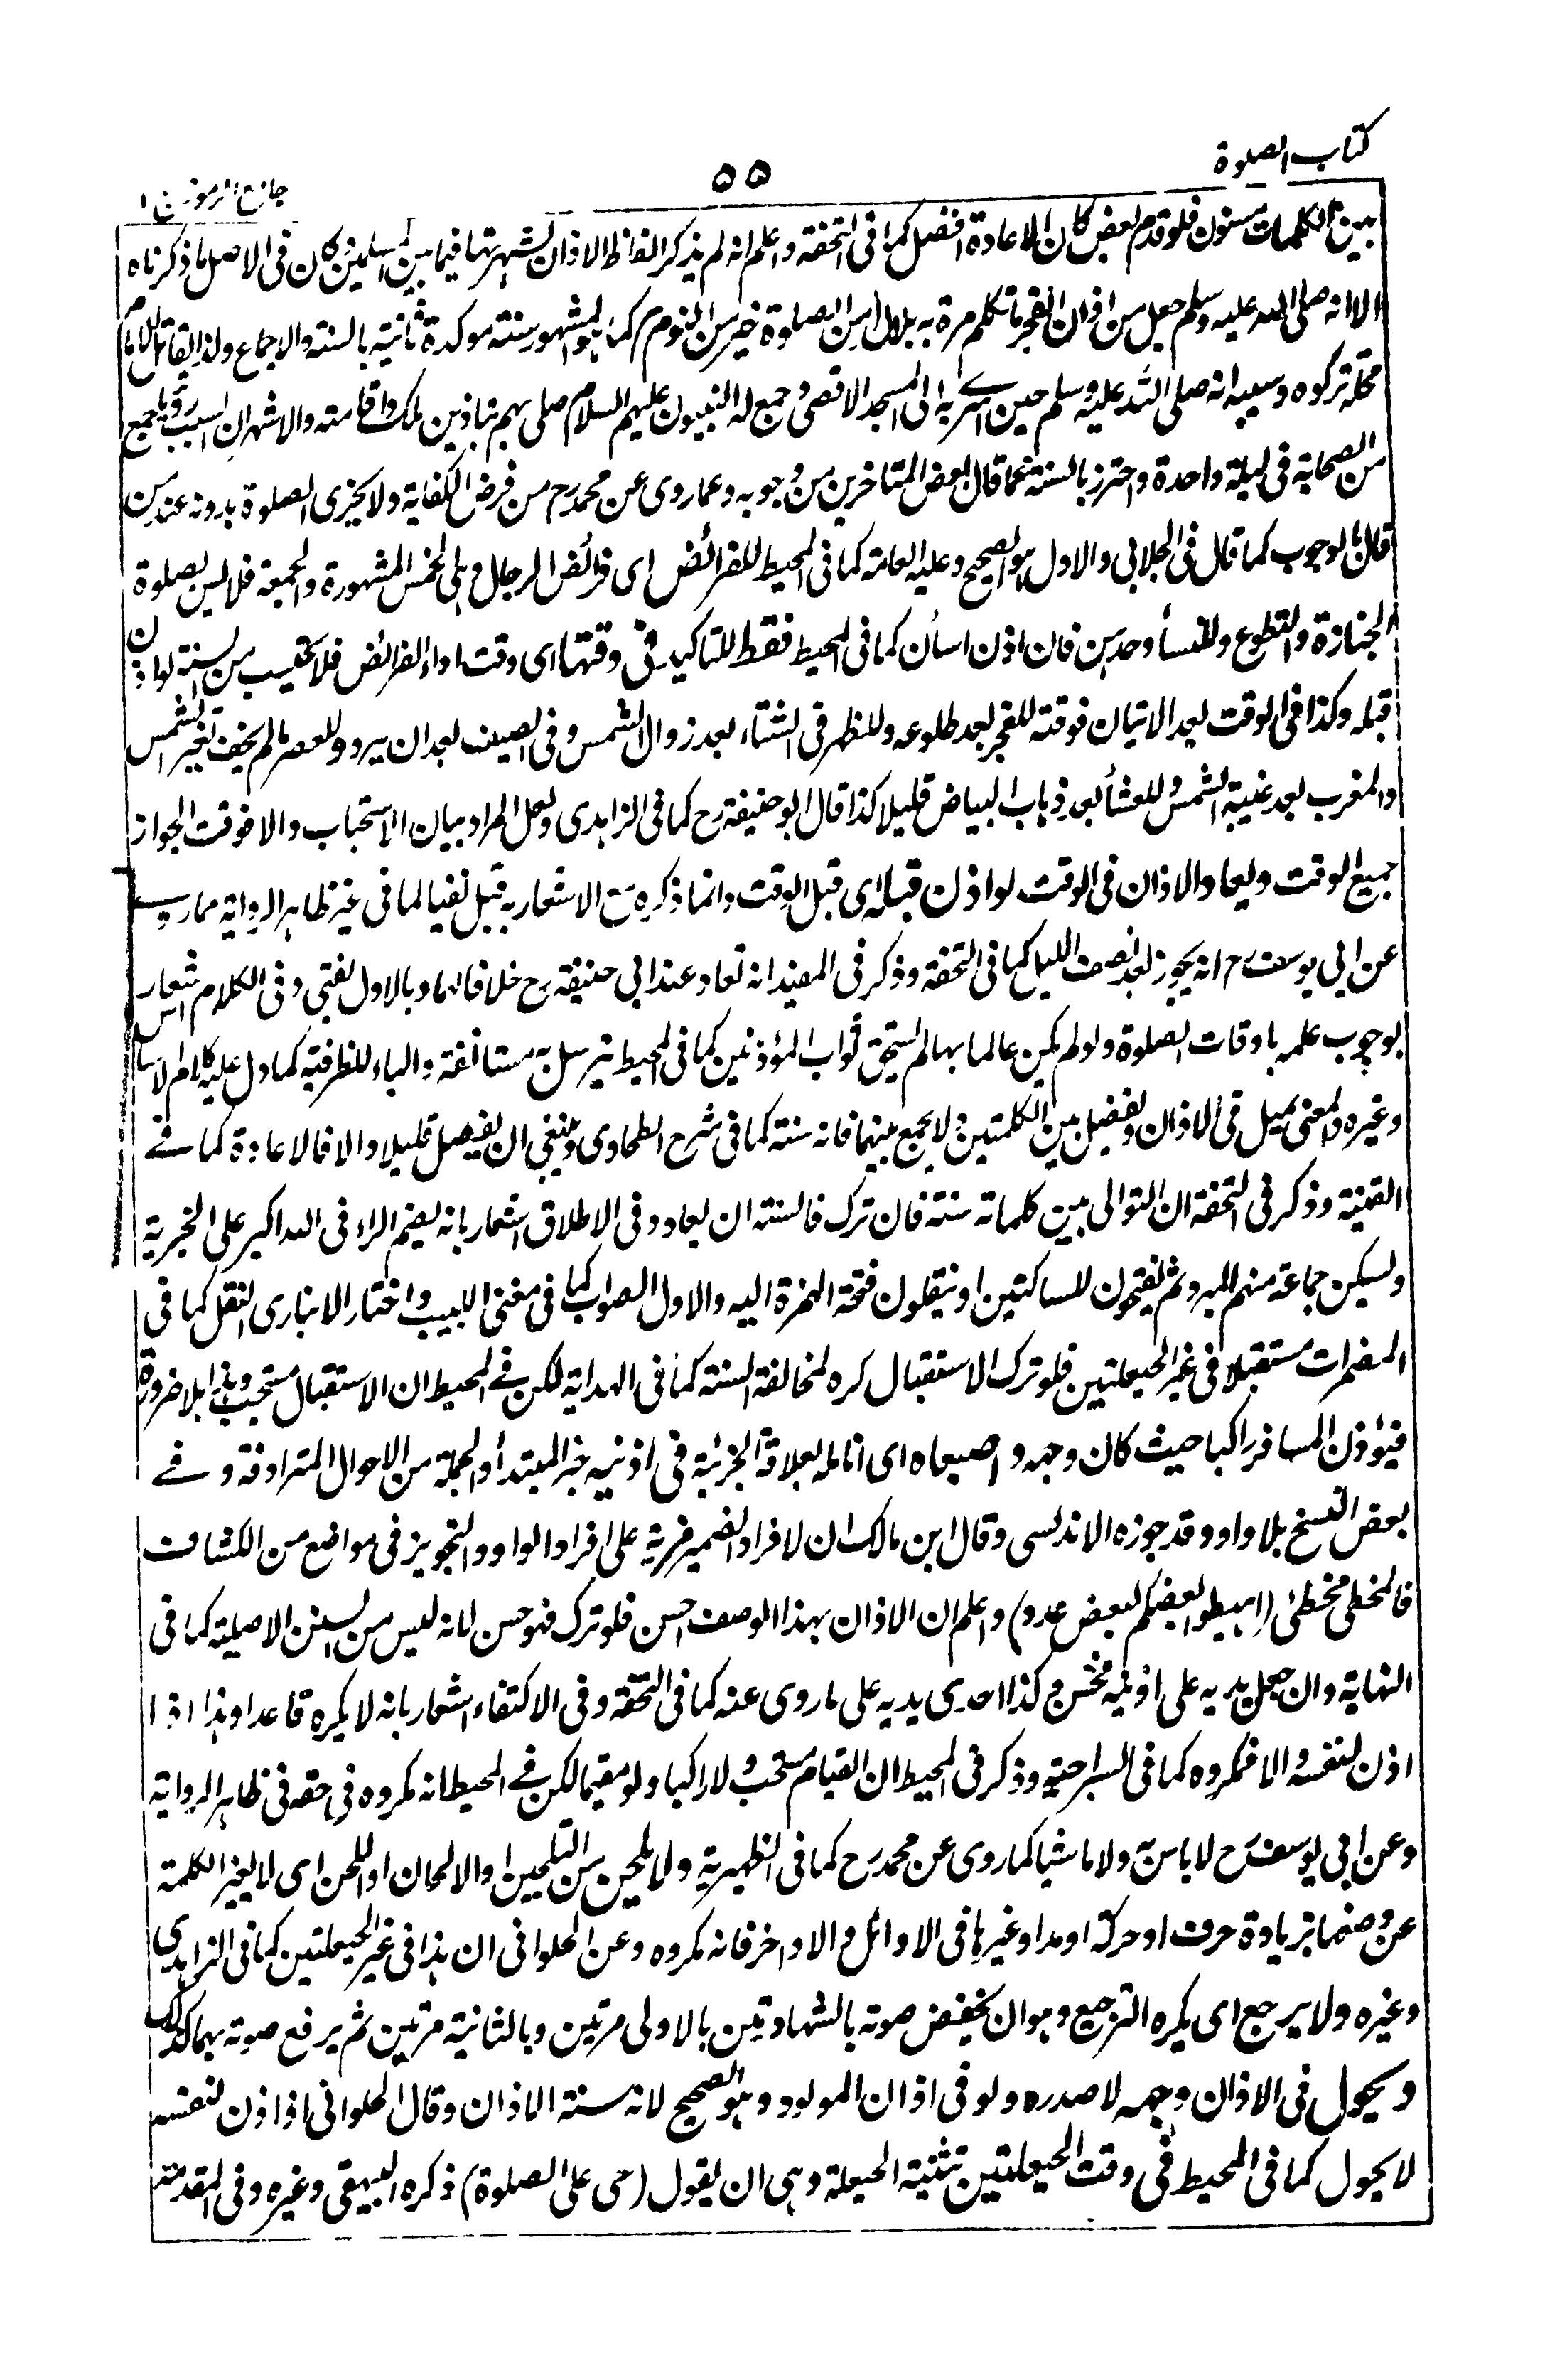 كتاب الصلوة
٥٥
جامع الرموز ج ١
بين الكلمات مسنون فلو قدم بعض كان الاعادة افضل كما فى التحفة واعلم انه لم يذكر الفاظ الاذان لشهرتها فيما بين المسلمين كان فى الاصل ما ذكرناه
الا انه صلى الله عليه وسلم جعل من اذان الفجر ما تكلم مرة به بلال من الصلوة خير من النوم كما هو المشهور سنة موكدة ثابتة بالسنة والاجماع ولذا يقاتل الامام
محلة تركوه وسببه انه صلى الله عليه وسلم حين اسرے به الى المسجد الاقصى وجمع له النبيون عليهم السلام صلى بهم بتاذين ملك واقامته والاشهر ان السبب رؤيا جميع
من الصحابة فى ليلة واحدة واحترز بالسنة عما قال بعض المتاخرين من وجوبه وعما روى عن محمد رح من فرض الكفاية ولا يجزى الصلوة بدونه عند من
قال بالوجوب كما قال فى الجلابى والاول هو الصحيح وعليه العامة كما فى المحيط للفرائض اى فرائض الرجال وهى الخمس المشهورة والجمعة فلا ليس لصلوة
الجنازة والتطوع وللنساء وحدهن فان اذن اسأن كما فى المحيط فقط للتاكيد فى وقتها اى وقت اداء الفرائض فلا يحتسب من السنة لو اذن
قبله وكذا فى الوقت بعد الاتيان فوقته للفجر بعد طلوعه وللظهر فى الشتاء بعد زوال الشمس وفى الصيف بعد ان يبرد وللعصر ما لم يخف تغير الشمس
والمغرب بعد غيبة الشمس وللعشأ بعد ذهاب البياض قليلا كذا قال ابو حنيفة رح كما فى الزاهدى ولعل المراد بيان الاستحباب والا فوقت الجواز
جميع الوقت ويعاد الاذان فى الوقت لو اذن قبله اى قبل الوقت وانما ذكره مع الاشعار به قبل نفيا لما فى غير ظاهر الرواية مما روى
عن ابى يوسف رح انه يجوز بعد نصف الليل كما فى التحفة وذكر فى المفيد انه تعاد عند ابى حنيفة رح خلافا لهما وبالاول يفتى وفى الكلام اشعار
بوجوب علمه باوقات الصلوة ولو لم يكن عالما بها لم يستحق ثواب المؤذنين كما فى المحيط يترسل به مستانفة والباء للظرفية كما دل عليه كلام الاساس
وغيره والمعنى يمهل فى الاذان ويفصل بين الكلمتين ولا يجمع بينهما فانه سنة كما فى شرح الطحاوى وينبغى ان يفصل قليلا والا فالاعادة كما فے
القنية وذكر فى التحفة ان التوالى بين كلماته سنة فان ترك فالسنة ان يعاد وفى الاطلاق اشعار بانه يضم الراء فى الله اكبر على الخبرية
ويسكن جماعة منهم المبرد ثم يفتحون للساكنين او ينقلون فتحة الهمزة اليه والاول الصواب كما فى مغنى اللبيب واختار الانبارى النقل كما فى
المضمرات مستقبلا فى غير الحيعلتين فلو ترك الاستقبال كره لمخالفة السنة كما فى الهداية لكن فے المحيط ان الاستقبال مستحب وهذا بلا ضرورة
فيؤذن المسافر راكبا حيث كان وجهه واصبعاه اى انامله بعلاقة الجزئية فى اذنيه خبر المبتدأ والجملة من الاحوال المترادفة وفے
بعض النسخ بلا واو وقد جوزه الاندلسى وقال ابن مالك ان لافراد الضمير مزية على افراد الواو والتجويز فى مواضع من الكشاف
فالمخطى مخطئ (اهبطوا بعضكم لبعض عدو) واعلم ان الاذان بهذا الوصف احسن فلو ترك فهو حسن لانه ليس من السنن الاصلية كما فى
النهاية وان جعل يديه على اذنيه فحسن وكذا احدى يديه على ما روى عنه كما فى التحفة وفى الاكتفاء اشعار بانه لا يكره قاعدا وهذا اذا
اذن لنفسه والا فمكروه كما فى السراجية وذكر فى المحيط ان القيام مستحب ولا راكبا ولو مقيما لكن فے المحيط انه مكروه فى حقه فى ظاهر الرواية
وعن ابى يوسف رح لا باس به ولا ماشيا كما روى عن محمد رح كما فى الظهيرية ولا يلحن من التلحين او الالحان او اللحن اى لا يغير الكلمة
عن وضعها بزيادة حرف او حركة او مد او غيرها فى الاوائل والاواخر فانه مكروه وعن الحلوانى ان هذا فى غير الحيعلتين كما فى الزاهدى
وغيره ولا يرجع اى يكره الترجيع وهو ان يخفض صوته بالشهادتين بالاولى مرتين وبالثانية مرتين ثم يرفع صوته بهما كذلك
ويحول فى الاذان وجهه لا صدره ولو فى اذان المولود وهو الصحيح لانه سنة الاذان وقال الحلوانى اذا اذن لنفسه
لا يحول كما فى المحيط فى وقت الحيعلتين تثنية الحيعلة وهى ان يقول (حى على الصلوة) ذكره البيهقى وغيره وفى المقدمة